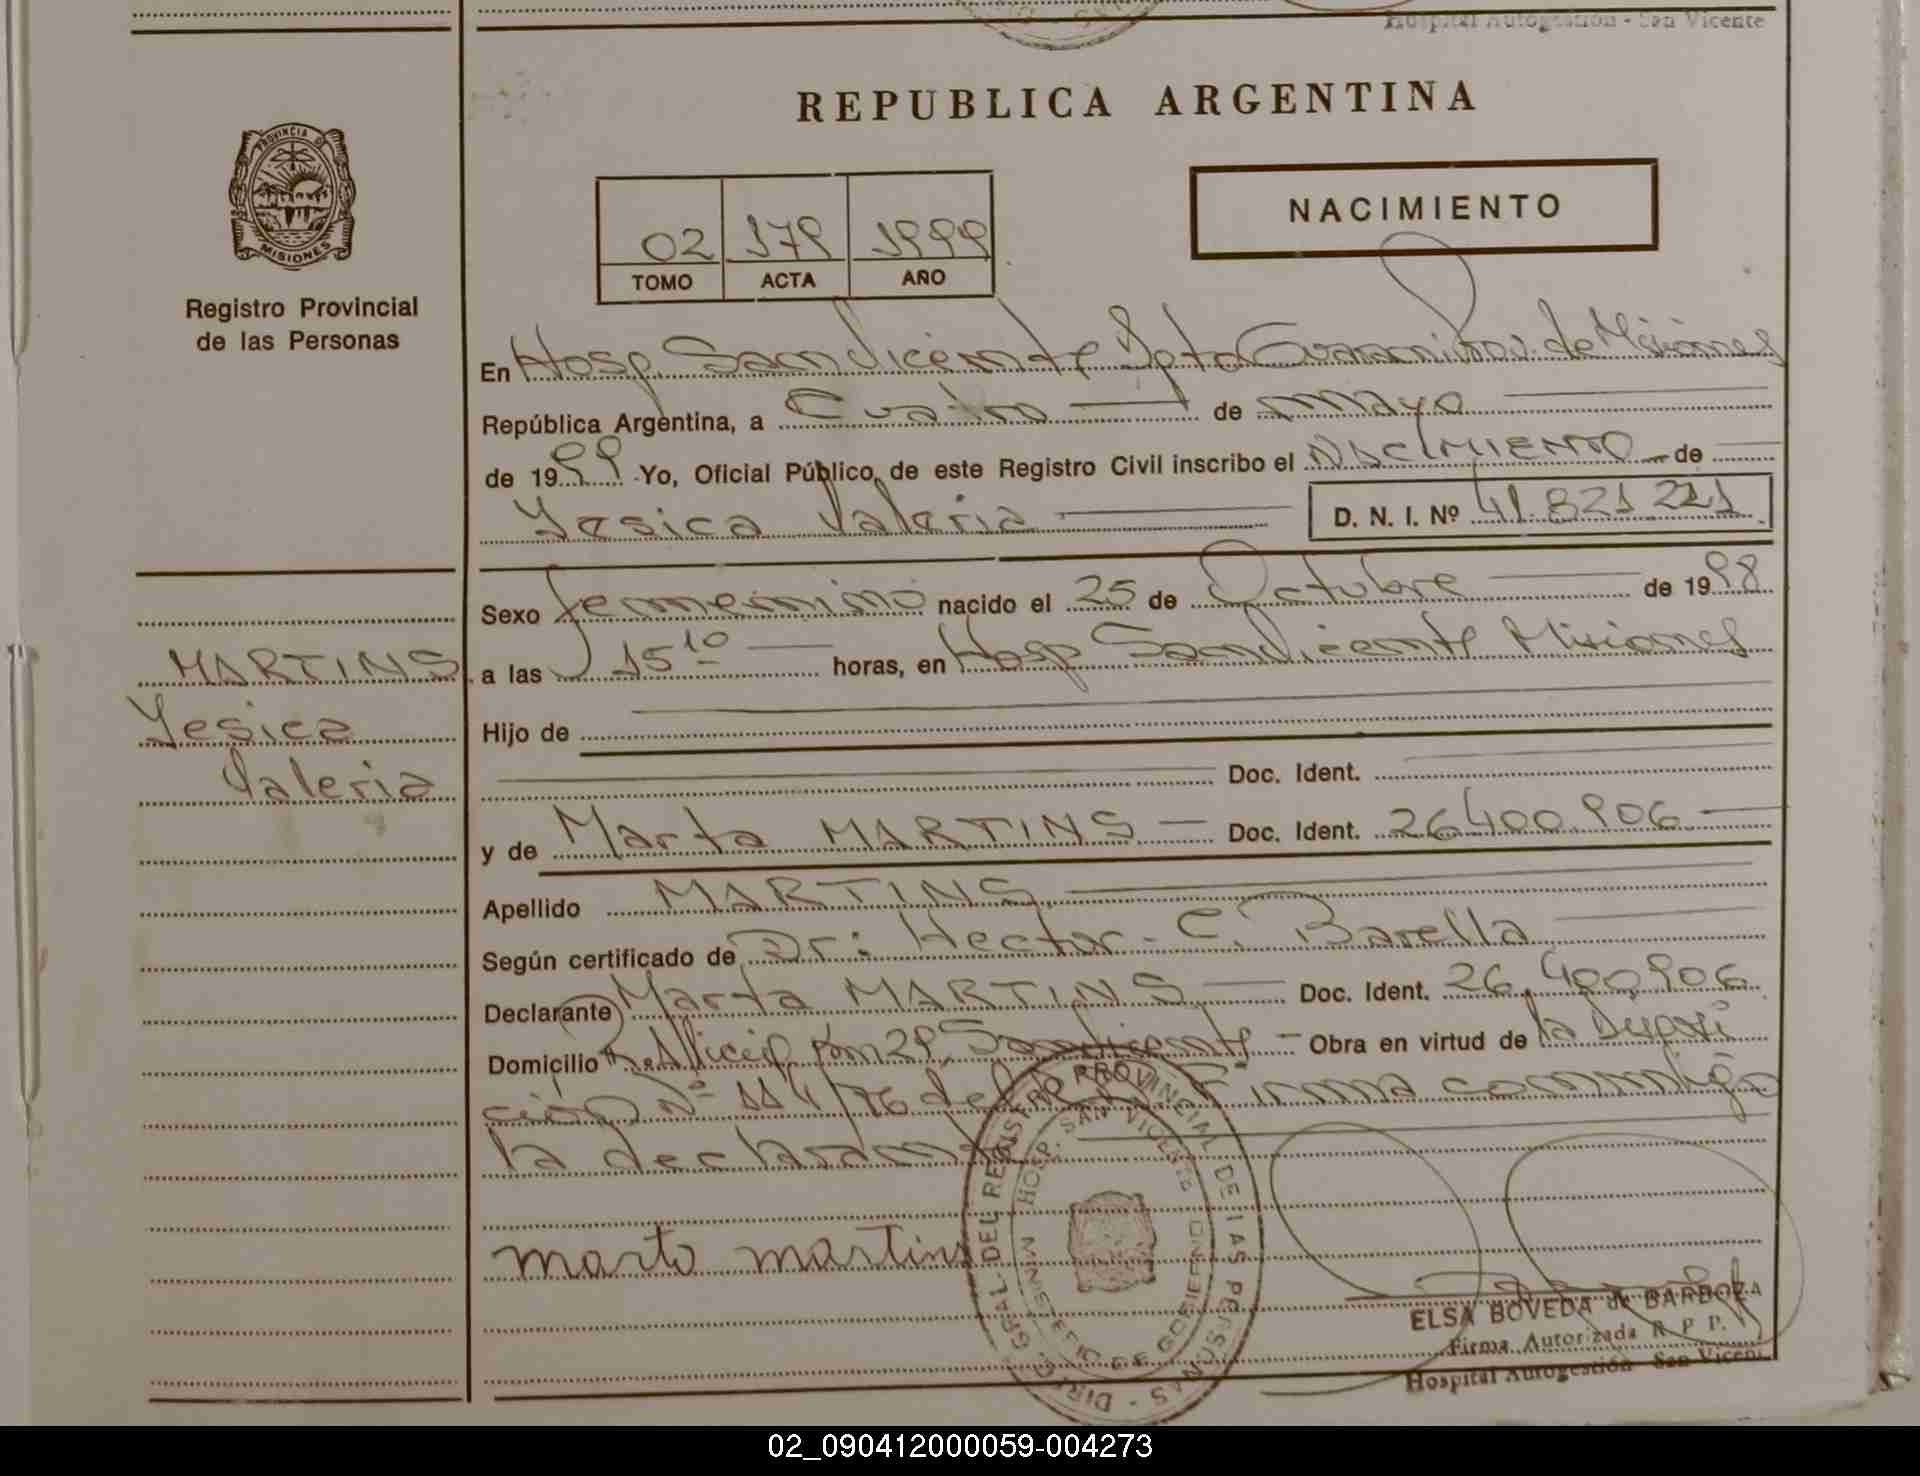 Hospital Autogestión - San Vicente
REPUBLICA ARGENTINA
PROVINCIA DE
MISIONES
Registro Provincial
de las Personas
NACIMIENTO
02 179 1999
TOMO ACTA AÑO
En Hosp. San Vicente Dpto Guaraní Prov. de Misiones
República Argentina, a Cuatro de mayo
de 1999 Yo, Oficial Público, de este Registro Civil inscribo el NACIMIENTO de
Yesica Valeria D. N. I. Nº 41.821.221
Sexo femenino nacido el 25 de Octubre de 1998
a las 15 10 horas, en Hosp San Vicente Misiones
MARTINS
Yesica
Valeria
Hijo de
Doc. Ident.
y de Marta MARTINS Doc. Ident. 26400.906
Apellido MARTINS
Según certificado de Dr: Hector C. Barella
Declarante Marta MARTINS Doc. Ident. 26.400.906
Domicilio San Vicente Obra en virtud de la Disposi
ción Nº 114/76 Firma conmigo
la declarante
marta martins
DIREC. GRAL. DEL REGISTRO PROVINCIAL DE LAS PERSONAS
HOSP. SAN VICENTE
MINISTERIO DE GOBIERNO
ELSA BOVEDA de BARBOZA
Firma Autorizada R. P. P.
Hospital Autogestión San Vicente
02_090412000059-004273